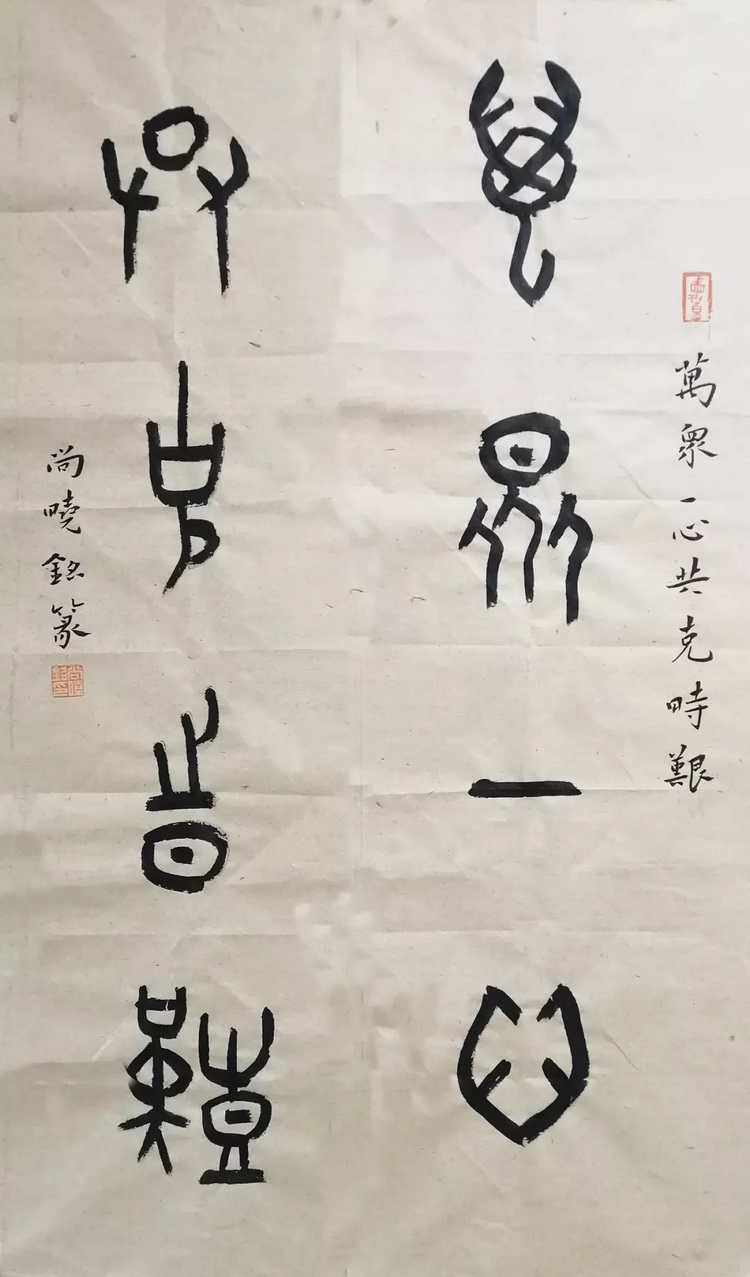 萬眾一心共克時艱
萬眾一心
共克時艱
尚曉銘篆